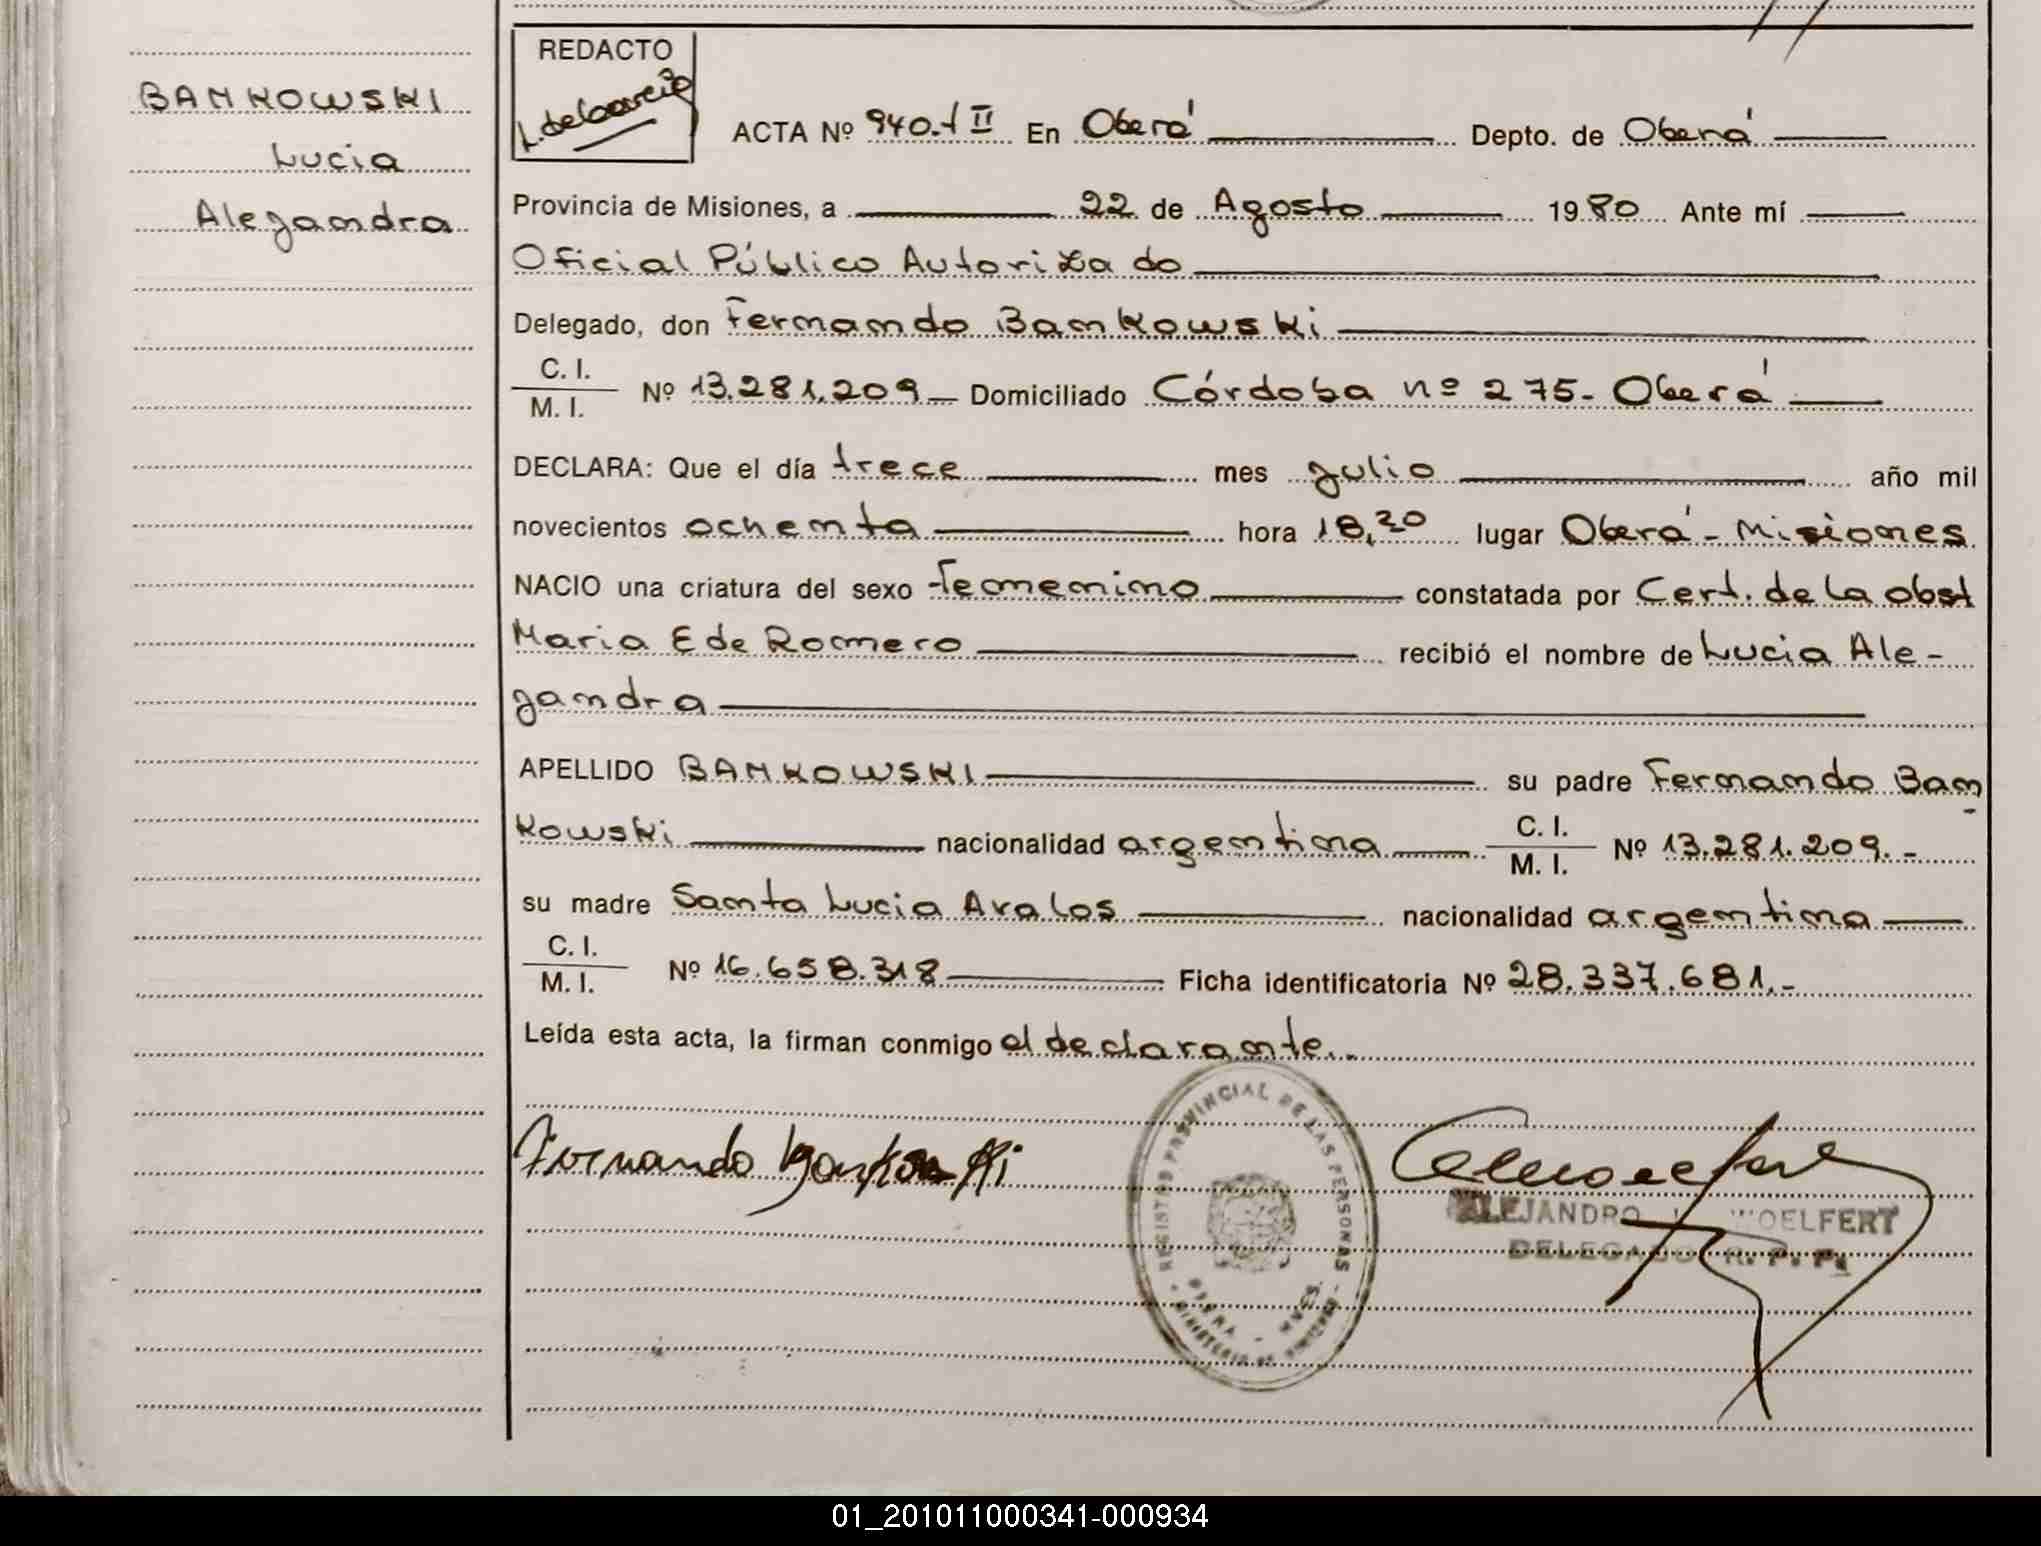 BANKOWSKI
Lucia
Alejandra
REDACTO
ACTA Nº 940.-t II En Oberá Depto. de Oberá
Provincia de Misiones, a 22 de Agosto 1980 Ante mí
Oficial Público Autorizado
Delegado, don Fernando Bankowski
C. I.
M. I. Nº 13.281.209 Domiciliado Córdoba nº 275- Oberá
DECLARA: Que el día trece mes julio año mil
novecientos ochenta hora 18,20 lugar Oberá - Misiones
NACIO una criatura del sexo femenino constatada por Cert. de la obst
Maria E de Romero recibió el nombre de Lucia Ale-
jandra
APELLIDO BANKOWSKI su padre Fernando Ban
kowski nacionalidad argentina C. I.
M. I. Nº 13.281.209.-
su madre Santa Lucia Avalos nacionalidad argentina
C. I.
M. I. Nº 16.658.318 Ficha identificatoria Nº 28.337.681.-
Leída esta acta, la firman conmigo el declarante.-
Fernando Bankowski
REGISTRO PROVINCIAL DE LAS PERSONAS
OBERA - MNES.
MINISTERIO DE GOBIERNO
ALEJANDRO WOELFERT
DELEGADO R. P. P.
01_201011000341-000934